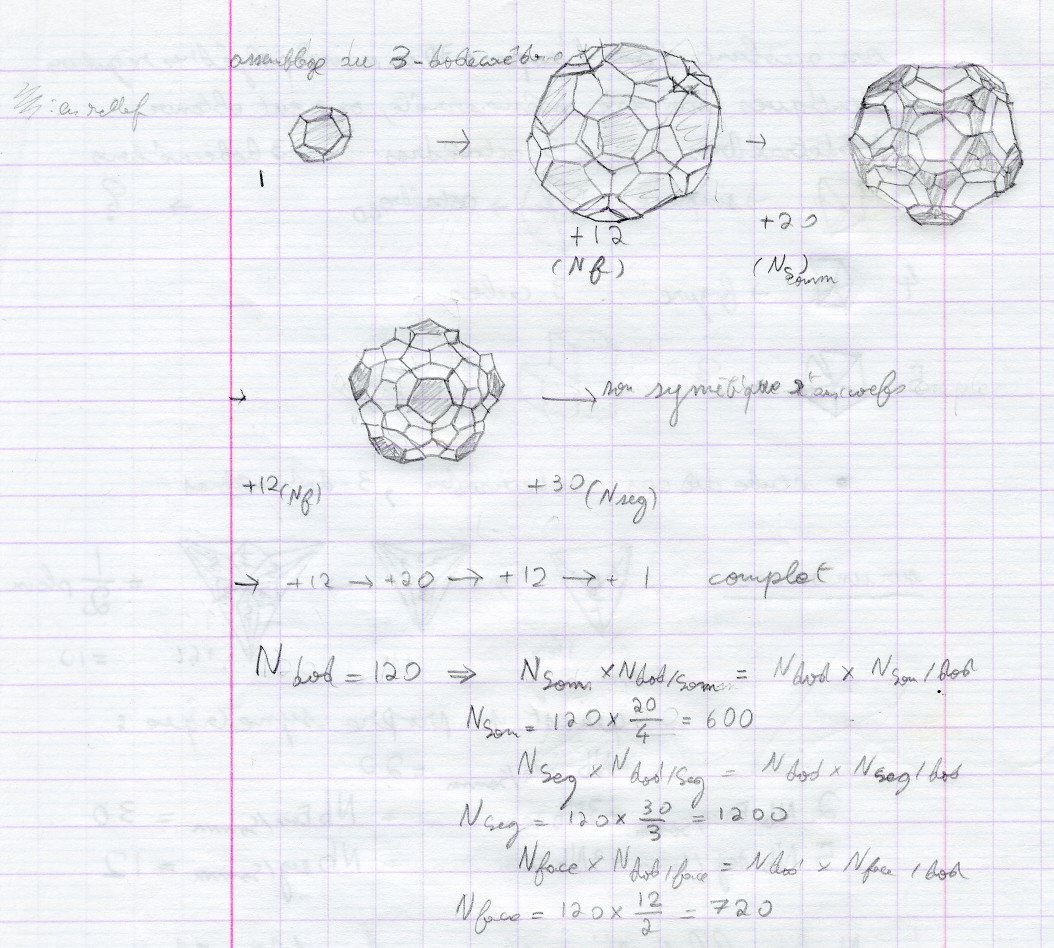 assemblage du 3-dodécaèdre
: en relief
→ →
1
+12 +20
(Nf) (Nsomm)
→ → non symétrique
+12(Nf) +30(Nseg)
→ +12 → +20 → +12 → + 1 complet
Ndod = 120 ⇒ Nsomm × Ndod/somm = Ndod × Nsom/dod
Nsom = 120 × 20/4 = 600
Nseg × Ndod/seg = Ndod × Nseg/dod
Nseg = 120 × 30/3 = 1200
Nface × Ndod/face = Ndod × Nface/dod
Nface = 120 × 12/2 = 720